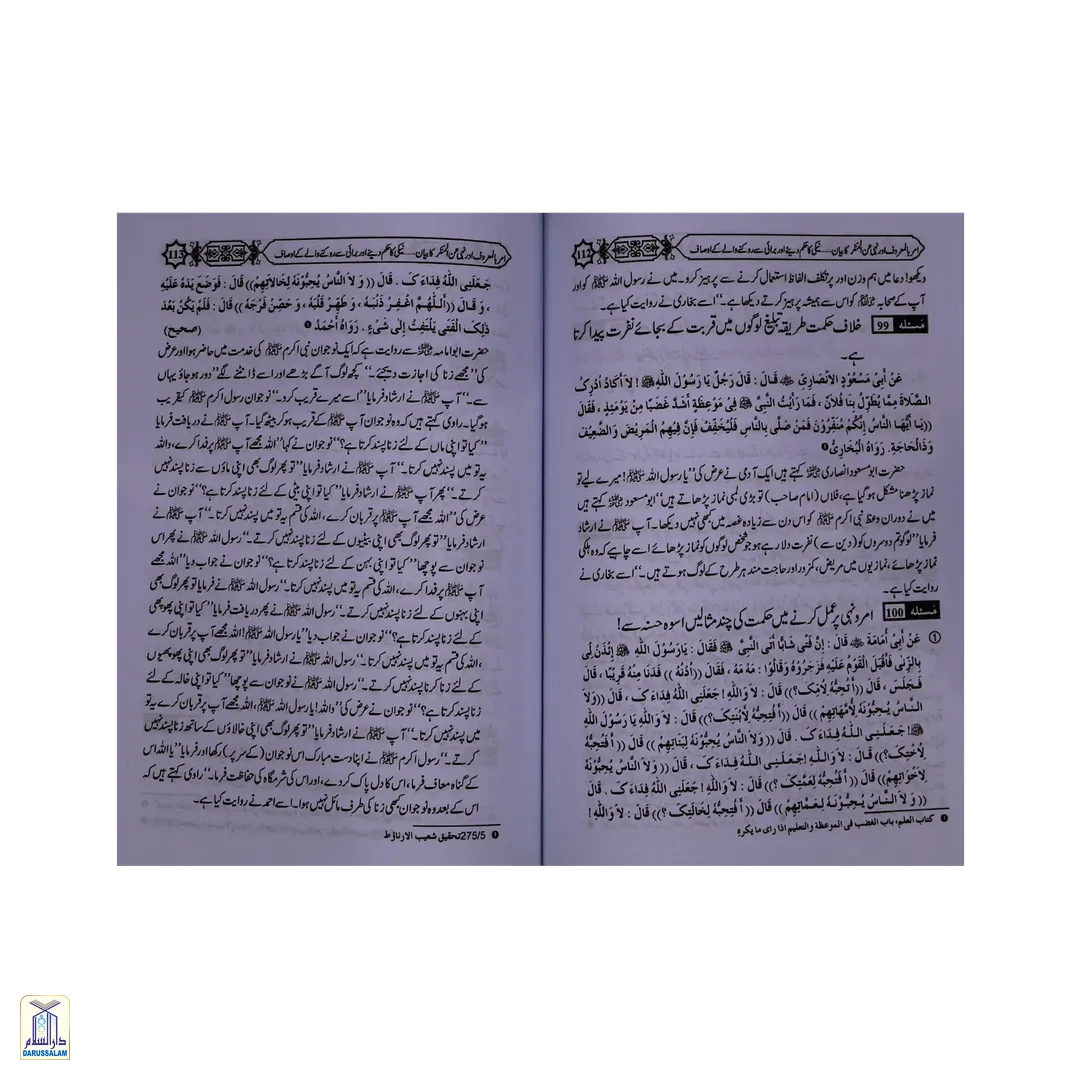 امر بالمعروف اور نہی عن المنکر کا بیان.... نیکی کا حکم دینے اور برائی سے روکنے والے کے اوصاف
112
دیکھو! دعا میں ہم وزن اور پرتکلف الفاظ استعمال کرنے سے پرہیز کرو۔ میں نے رسول اللہ ﷺ کو اور
آپ کے صحابہ کو اس سے ہمیشہ پرہیز کرتے دیکھا ہے۔‘‘ اسے بخاری نے روایت کیا ہے۔
مَسئله 99 خلاف حکمت طریقہ تبلیغ لوگوں میں قربت کے بجائے نفرت پیدا کرتا
ہے۔
عَنْ أَبِیْ مَسْعُوْدِ الْاَنْصَارِیِّ قَالَ : قَالَ رَجُلٌ یَا رَسُوْلَ اللّٰهِ ﷺ ! لاَ أَکَادُ أُدْرِکُ
الصَّلاَةَ مِمَّا یُطَوِّلُ بِنَا فُلاَنٌ ، فَمَا رَأَیْتُ النَّبِیَّ ﷺ فِیْ مَوْعِظَةٍ أَشَدَّ غَضَبًا مِنْ یَوْمَئِذٍ ، فَقَالَ
((یَا أَیُّهَا النَّاسُ إِنَّکُمْ مُنَفِّرُوْنَ فَمَنْ صَلَّی بِالنَّاسِ فَلْیُخَفِّفْ فَإِنَّ فِیْهِمُ الْمَرِیْضَ وَالضَّعِیْفَ
وَذَالْحَاجَةِ. رَوَاهُ الْبُخَارِیُّ ❶
حضرت ابو مسعود انصاری کہتے ہیں ایک آدمی نے عرض کی ’’یا رسول اللہ ﷺ! میرے لیے تو
نماز پڑھنا مشکل ہو گیا ہے، فلاں (امام صاحب) تو بڑی لمبی نماز پڑھاتے ہیں‘‘ ابو مسعود کہتے ہیں
میں نے دوران وعظ نبی اکرم ﷺ کو اس دن سے زیادہ غصہ میں کبھی نہیں دیکھا۔ آپ ﷺ نے ارشاد
فرمایا ’’لوگو تم دوسروں کو (دین سے) نفرت دلا رہے ہو جو شخص لوگوں کو نماز پڑھائے اسے چاہیے کہ وہ ہلکی
نماز پڑھائے، نمازیوں میں مریض، کمزور اور حاجت مند ہر طرح کے لوگ ہوتے ہیں۔‘‘ اسے بخاری نے
روایت کیا ہے۔
مَسئله 100 امر و نہی پر عمل کرنے میں حکمت کی چند مثالیں اسوہ حسنہ سے!
① عَنْ أَبِیْ أُمَامَةَ قَالَ : إِنَّ فَتًی شَابًّا أَتَی النَّبِیَّ ﷺ فَقَالَ : یَارَسُوْلَ اللّٰهِ ﷺ إِئْذَنْ لِیْ
بِالزِّنٰی فَأَقْبَلَ الْقَوْمُ عَلَیْهِ فَزَجَرُوْهُ وَقَالُوْا : مَهْ مَهْ ، فَقَالَ ((أُدْنُهْ )) فَدَنَا مِنْهُ قَرِیْبًا ، قَالَ
فَجَلَسَ ، قَالَ (( أَتُحِبُّهُ لِأُمِّکَ؟)) قَالَ : لاَ وَاللّٰهِ! جَعَلَنِیَ اللّٰهُ فِدَاءَ کَ ، قَالَ ((وَلاَ
النَّاسُ یُحِبُّوْنَهُ لِأُمَّهَاتِهِمْ )) قَالَ ((أَفَتُحِبُّهُ لِأَبْنَتِکَ؟)) قَالَ : لاَ وَاللّٰهِ یَا رَسُوْلَ اللّٰهِ
ﷺ! جَعَلَنِیَ اللّٰهُ فِدَاءَ کَ . قَالَ ((وَلاَ النَّاسُ یُحِبُّوْنَهُ لِبَنَاتِهِمْ )) قَالَ (( أَفَتُحِبُّهُ
لِأُخْتِکَ؟)) قَالَ : لاَ وَاللّٰهِ !جَعَلَنِیَ اللّٰهُ فِدَاءَ کَ ، قَالَ (( وَ لاَ النَّاسُ یُحِبُّوْنَهُ
لِأَخَوَاتِهِمْ)) قَالَ (( أَفَتُحِبُّهُ لِعَمَّتِکَ ؟)) قَالَ : لاَ وَاللّٰهِ ! جَعَلَنِی اللّٰهُ فِدَاءَ کَ . قَالَ
(( وَ لاَ النَّاسُ یُحِبُّوْنَهُ لِعَمَّاتِهِمْ)) قَالَ (( أَفَتُحِبُّهُ لِخَالَتِکَ ؟)) قَالَ : لاَ وَاللّٰهِ!
❶ کتاب العلم، باب الغضب فی الموعظة والتعلیم اذا رای ما یکره
امر بالمعروف اور نہی عن المنکر کا بیان.... نیکی کا حکم دینے اور برائی سے روکنے والے کے اوصاف
113
جَعَلَنِی اللّٰهُ فِدَاءَ کَ . قَالَ (( وَ لاَ النَّاسُ یُحِبُّوْنَهُ لِخَالاَتِهِمْ)) قَالَ : فَوَضَعَ یَدَهُ عَلَیْهِ
، وَ قَالَ ((أَللّٰهُمَّ اغْفِرْ ذَنْبَهُ ، وَ طَهِّرْ قَلْبَهُ ، وَ حَصِّنْ فَرْجَهُ )) قَالَ : فَلَمْ یَکُنْ بَعْدَ
ذٰلِکَ الْفَتَی یَلْتَفِتُ إِلٰی شَیْءٍ . رَوَاهُ أَحْمَدُ ❶ (صحیح)
حضرت ابو امامہ سے روایت ہے کہ ایک نوجوان نبی اکرم ﷺ کی خدمت میں حاضر ہوا اور عرض
کی ’’مجھے زنا کی اجازت دیجئے۔‘‘ کچھ لوگ آگے بڑھے اور اسے ڈانٹنے لگے ’’دور ہو جاؤ یہاں
سے۔‘‘ آپ ﷺ نے ارشاد فرمایا ’’اسے میرے قریب کرو۔‘‘ نوجوان رسول اکرم ﷺ کے قریب
ہو گیا۔ راوی کہتے ہیں کہ وہ نوجوان آپ ﷺ کے قریب ہو کر بیٹھ گیا۔ آپ ﷺ نے دریافت فرمایا
’’کیا تو اپنی ماں کے لئے زنا پسند کرتا ہے؟‘‘ نوجوان نے کہا ’’اللہ مجھے آپ ﷺ پر فدا کرے، واللہ
یہ تو میں پسند نہیں کرتا۔‘‘ آپ ﷺ نے ارشاد فرمایا ’’تو پھر لوگ بھی اپنی ماؤں سے زنا پسند نہیں
کرتے۔‘‘ پھر آپ ﷺ نے ارشاد فرمایا ’’کیا تو اپنی بیٹی کے لئے زنا پسند کرتا ہے؟‘‘ نوجوان نے
عرض کی ’’اللہ مجھے آپ ﷺ پر قربان کرے، اللہ کی قسم یہ تو میں پسند نہیں کرتا۔‘‘ آپ ﷺ نے
ارشاد فرمایا ’’تو پھر لوگ بھی اپنی بیٹیوں کے لئے زنا پسند نہیں کرتے۔‘‘ رسول اللہ ﷺ نے پھر اس
نوجوان سے پوچھا ’’کیا تو اپنی بہن کے لئے زنا پسند کرتا ہے؟‘‘ نوجوان نے جواب دیا ’’اللہ مجھے
آپ ﷺ پر فدا کرے، اللہ کی قسم یہ تو میں پسند نہیں کرتا۔‘‘ رسول اللہ ﷺ نے فرمایا تو پھر لوگ بھی
اپنی بہنوں کے لئے زنا پسند نہیں کرتے۔‘‘ رسول اللہ ﷺ نے پھر دریافت فرمایا ’’کیا تو اپنی پھوپھی
کے لئے زنا پسند کرتا ہے؟‘‘ نوجوان نے جواب دیا ’’یا رسول اللہ ﷺ! اللہ مجھے آپ پر قربان کرے
، اللہ کی قسم یہ تو میں پسند نہیں کرتا۔‘‘ رسول اللہ ﷺ نے ارشاد فرمایا ’’تو پھر لوگ بھی اپنی پھوپھیوں
کے لئے زنا کرنا پسند نہیں کرتے۔‘‘ رسول اللہ ﷺ نے نوجوان سے پوچھا ’’کیا تو اپنی خالہ کے لئے
زنا پسند کرتا ہے؟‘‘ نوجوان نے عرض کی ’’واللہ! یا رسول اللہ ﷺ، اللہ مجھے آپ پر قربان کرے یہ تو
میں پسند نہیں کرتا۔‘‘ آپ ﷺ نے ارشاد فرمایا ’’تو پھر لوگ بھی اپنی خالاؤں کے ساتھ زنا پسند نہیں
کرتے۔‘‘ رسول اکرم ﷺ نے اپنا دست مبارک اس نوجوان (کے سر پر) رکھا اور فرمایا ’’یا اللہ اس
کے گناہ معاف فرما، اس کا دل پاک کر دے، اور اس کی شرمگاہ کی حفاظت فرما۔‘‘ راوی کہتے ہیں کہ
اس کے بعد وہ نوجوان کبھی زنا کی طرف مائل نہیں ہوا۔ اسے احمد نے روایت کیا ہے۔
❶ 275/5 تحقیق شعیب الارناؤط
دارالسلام
DARUSSALAM